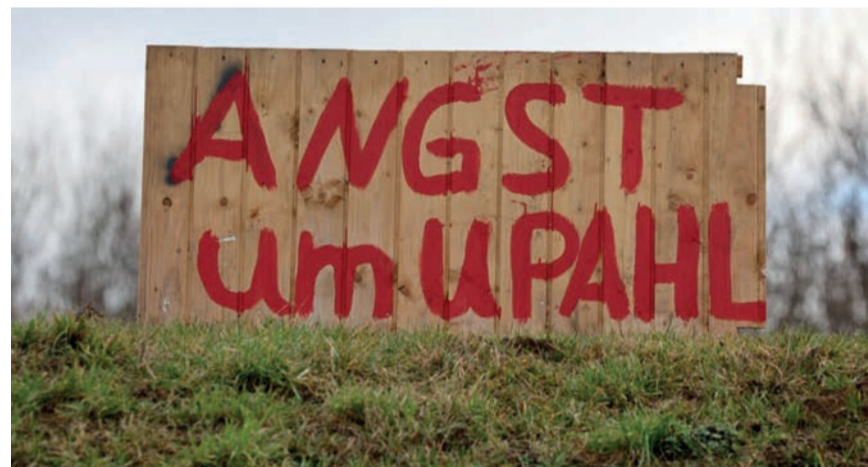 ANGST
um UPAHL